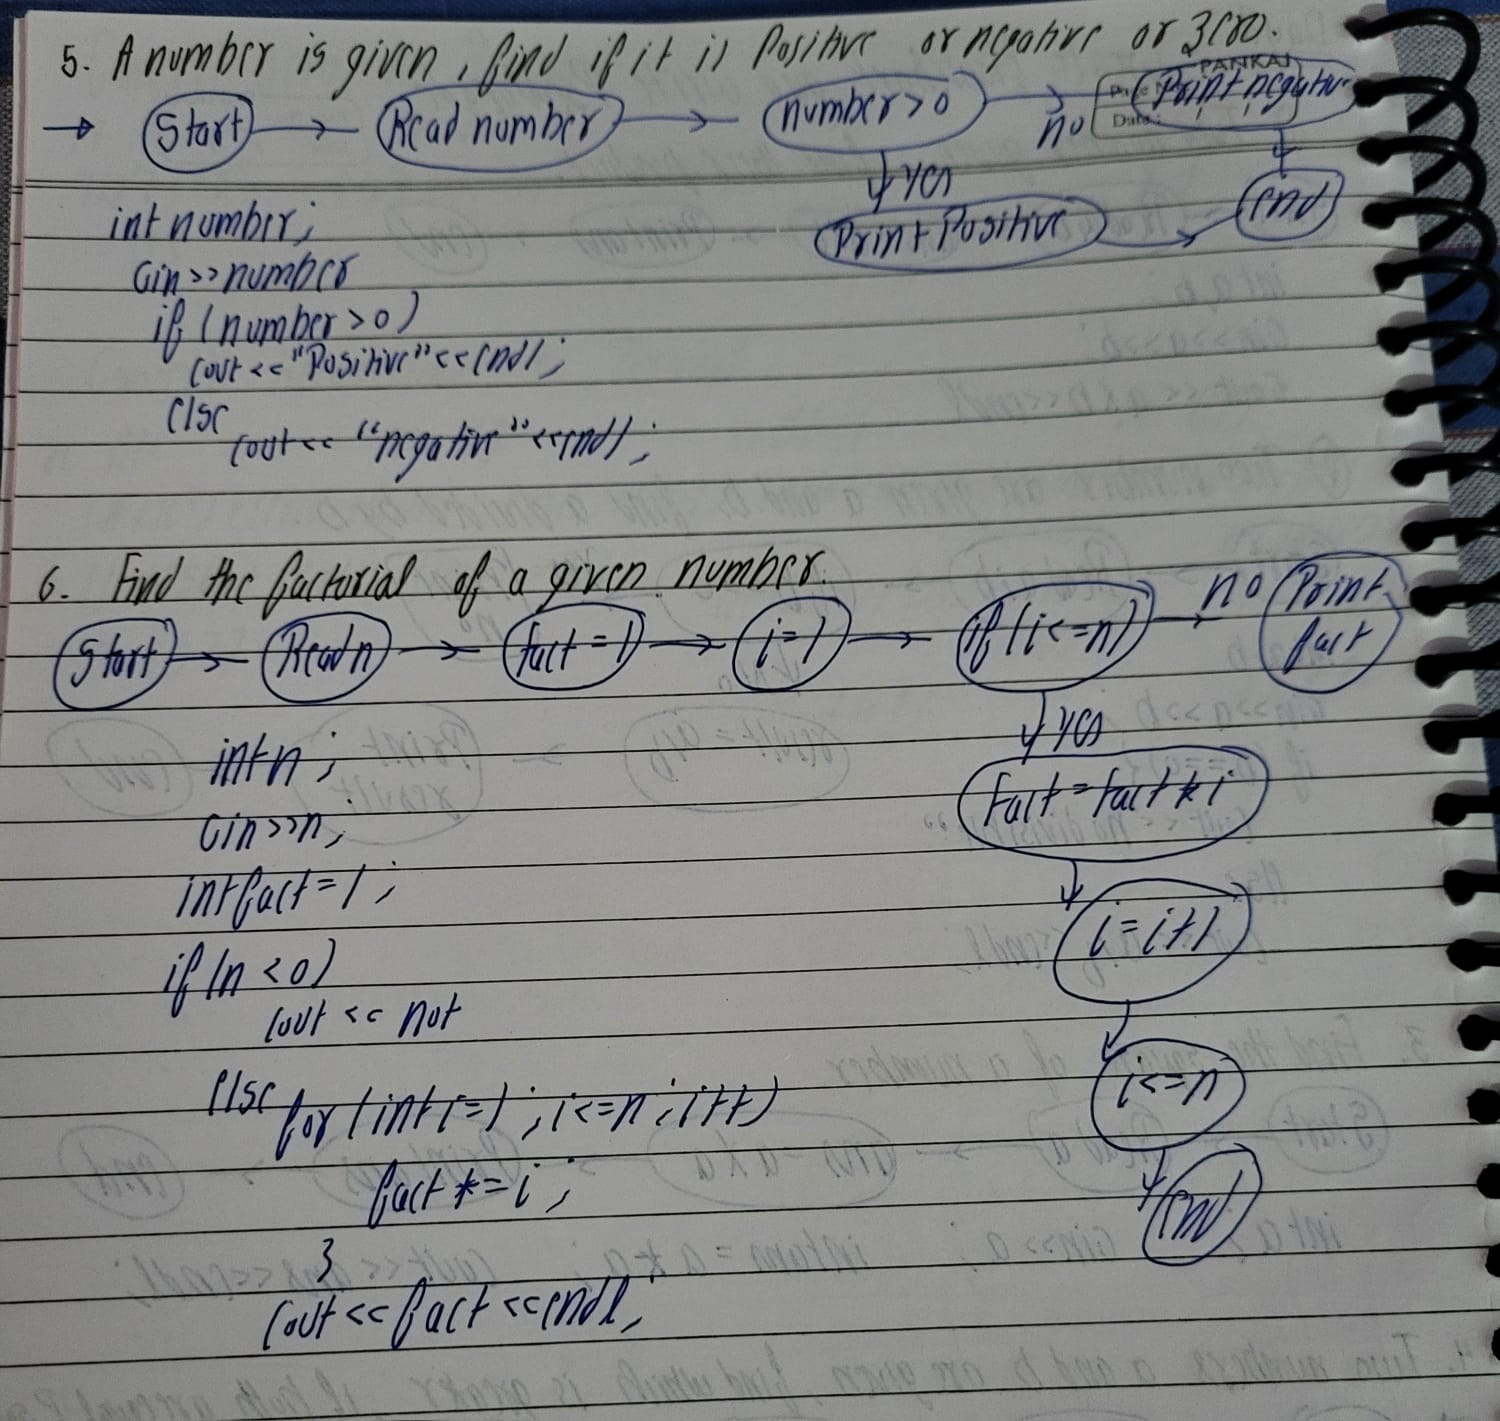 5. A number is given, find if it is Positive or negative or zero.
PANKAJ
Date:
→ Start → Read number → number>0 → no Print negative
↓ yes ↓
Print Positive → end
int number;
Cin>>number
if (number>0)
cout<<"Positive"<<endl;
else
cout<< "negative"<<endl;
6. Find the factorial of a given number.
Start → Read n → fact=1 → i=1 → if(i<=n) → no Print fact
↓ yes
int n;
fact=fact*i
Cin>>n;
↓
int fact=1;
i=i+1
if(n<0)
↓
cout << not
i<=n
else
for(int i=1;i<=n;i++)
↓
fact*=i;
end
}
cout<<fact<<endl;